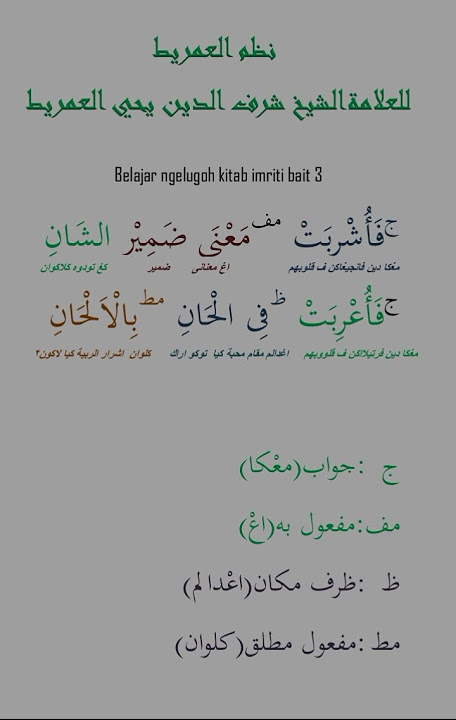 نظم العمريط
للعلامة الشيخ شرف الدين يحي العمريط
Belajar ngelugoh kitab imriti bait 3
ج فَأُشْرِبَتْ مف مَعْنَى ضَمِيْرِ الشَانِ
مڠكا دين فانجيڠاكن ف قلوبهم اڠ معنانى ضمير كڠ تودوه كلاكوان
ج فَأُعْرِبَتْ ظ فِى الْحَانِ مط بِالْاَلْحَانِ
مڠكا دين فرتيلااكن ف قلووبهم اڠدالم مقام محبة كيا توكو اراك كلوان اشرار الربية كيا لاكون٢
ج :جواب(مڠْكا)
مف:مفعول به(اڠْ)
ظ :ظرف مكان(اڠْدالم)
مط :مفعول مطلق(كلوان)